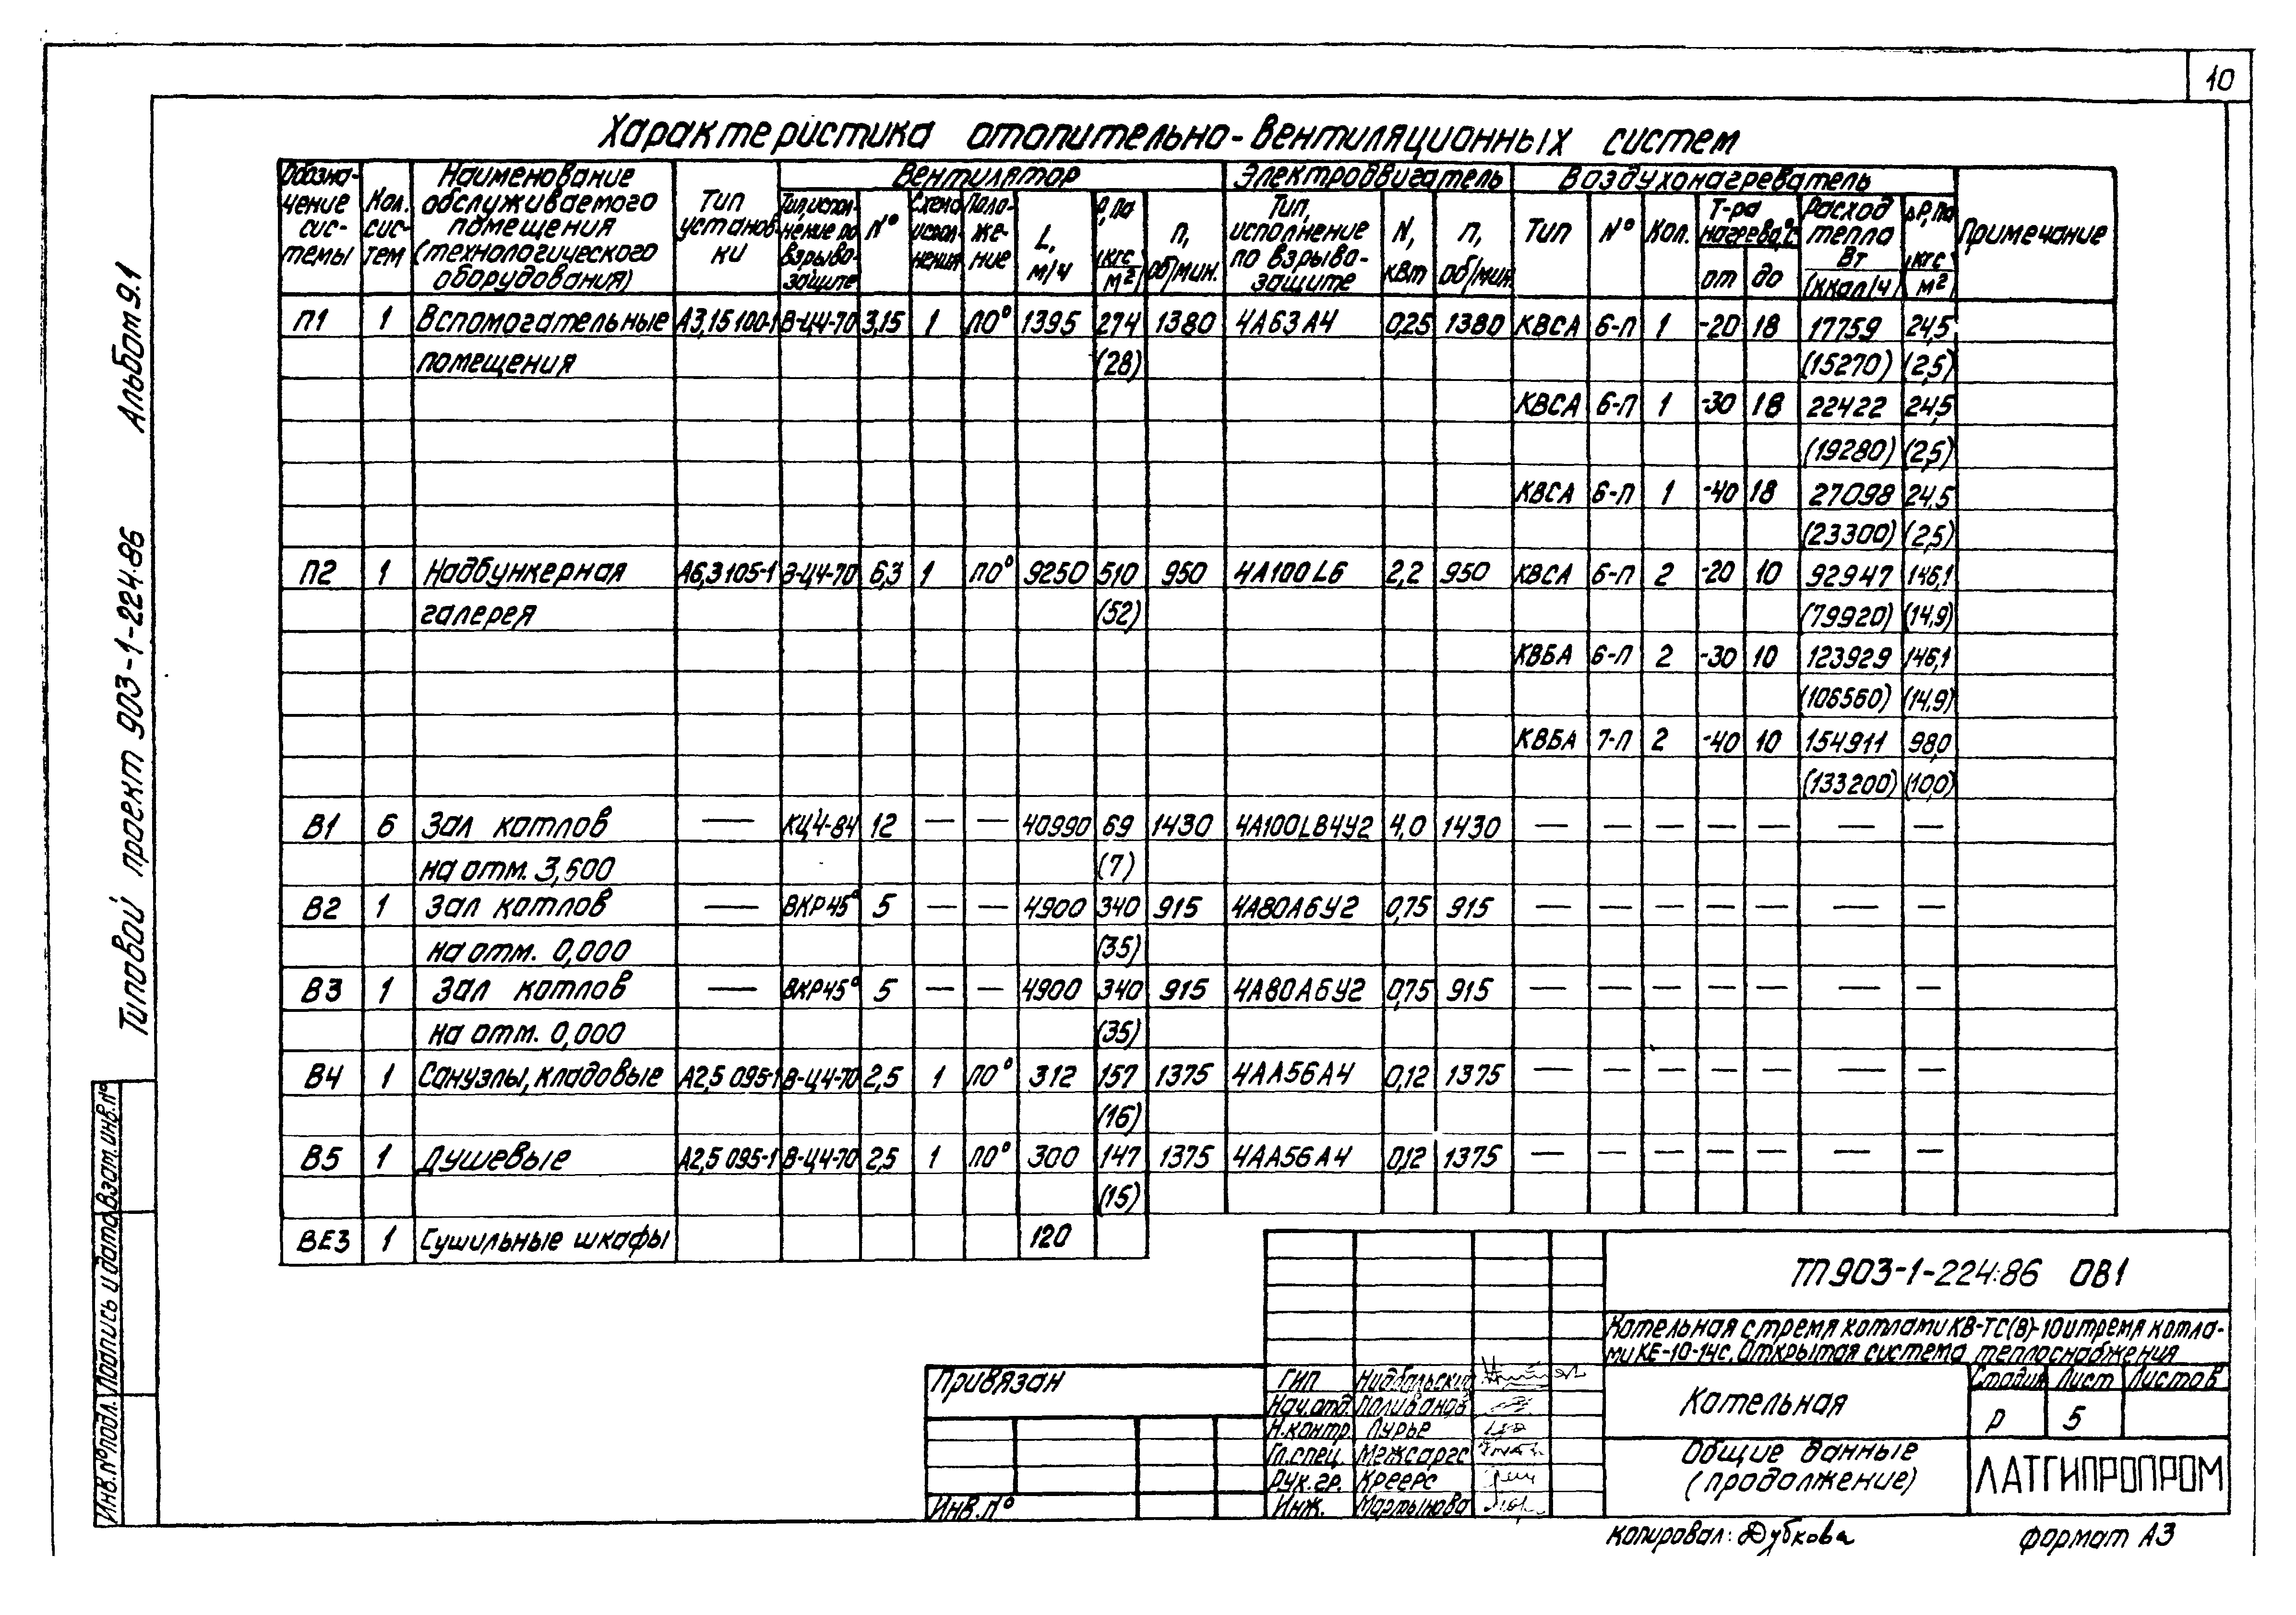 10
Характеристика отопительно-вентиляционных систем
Обозначение системы
Кол. систем
Наименование обслуживаемого помещения (технологического оборудования)
Тип установки
Вентилятор
Электродвигатель
Воздухонагреватель
Примечание
Тип, исполнение по взрывозащите
N°
Схема исполнения
Положение
L, м/ч
P, Па (кгс/м²)
п, об/мин.
Тип, исполнение по взрывозащите
N, кВт
п, об/мин.
Тип
N°
Кол.
Т-ра нагрева, °С
от
до
Расход тепла Вт (ккал/ч)
ΔР, Па (кгс/м²)
П1 1 Вспомогательные А3,15 100-1 В-Ц4-70 3,15 1 ЛО° 1395 274 1380 4А63А4 0,25 1380 КВСА 6-П 1 -20 18 17759 24,5
помещения (28) (15270) (2,5)
КВСА 6-П 1 -30 18 22422 24,5
(19280) (2,5)
КВСА 6-П 1 -40 18 27098 24,5
(23300) (2,5)
П2 1 Надбункерная А6,3 105-1 В-Ц4-70 6,3 1 ЛО° 9250 510 950 4А100L6 2,2 950 КВСА 6-П 2 -20 10 92947 146,1
галерея (52) (79920) (14,9)
КВБА 6-П 2 -30 10 123929 146,1
(106560) (14,9)
КВБА 7-П 2 -40 10 154911 98,0
(133200) (10,0)
В1 6 Зал котлов — КЦ4-84 12 — — 40990 69 1430 4А100LВ4У2 4,0 1430 — — — — — — —
на отм. 3,600 (7)
В2 1 Зал котлов — ВКР45° 5 — — 4900 340 915 4А80А6У2 0,75 915 — — — — — — —
на отм. 0,000 (35)
В3 1 Зал котлов — ВКР45° 5 — — 4900 340 915 4А80А6У2 0,75 915 — — — — — — —
на отм. 0,000 (35)
В4 1 Санузлы, кладовые А2,5 095-1 В-Ц4-70 2,5 1 ЛО° 312 157 1375 4АА56А4 0,12 1375 — — — — — — —
(16)
В5 1 Душевые А2,5 095-1 В-Ц4-70 2,5 1 ЛО° 300 147 1375 4АА56А4 0,12 1375 — — — — — — —
(15)
ВЕ3 1 Сушильные шкафы 120
Типовой проект 903-1-224.86 Альбом 9.1
Инв. N° подл. Подпись и дата Взат. инв. N°
ТП 903-1-224.86 ОВ1
Котельная с тремя котлами КВ-ТС(В)-10 и тремя котла-
ми КЕ-10-14с. Открытая система теплоснабжения
Привязан
Инв. N°
ГИП Нидбальский
Нач. отд. Поливанов
Н.контр. Лурье
Гл. спец. Межсаргс
Рук. гр. Креерс
Инж. Мартынова
Котельная
Стадия Лист Листов
Р 5
Общие данные
(продолжение)
ЛАТГИПРОПРОМ
Копировал: Дубкова
формат А3